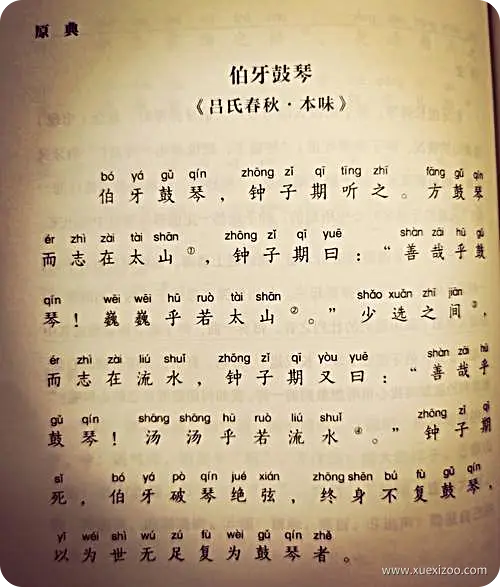 原典
伯牙鼓琴
《吕氏春秋·本味》
bó yá gǔ qín zhōng zǐ qī tīng zhī fāng gǔ qín
伯牙鼓琴，钟子期听之。方鼓琴
ér zhì zài tài shān zhōng zǐ qī yuē shàn zāi hū gǔ
而志在太山①，钟子期曰：“善哉乎鼓
qín wēi wēi hū ruò tài shān shǎo xuǎn zhī jiān
琴！巍巍乎若太山②。”少选之间③，
ér zhì zài liú shuǐ zhōng zǐ qī yòu yuē shàn zāi hū
而志在流水，钟子期又曰：“善哉乎
gǔ qín shāng shāng hū ruò liú shuǐ zhōng zǐ qī
鼓琴！汤汤乎若流水④。”钟子期
sǐ bó yá pò qín jué xián zhōng shēn bú fù gǔ qín
死，伯牙破琴绝弦，终身不复鼓琴，
yǐ wéi shì wú zú fù wèi gǔ qín zhě
以为世无足复为鼓琴者。
www.xuexizoo.com